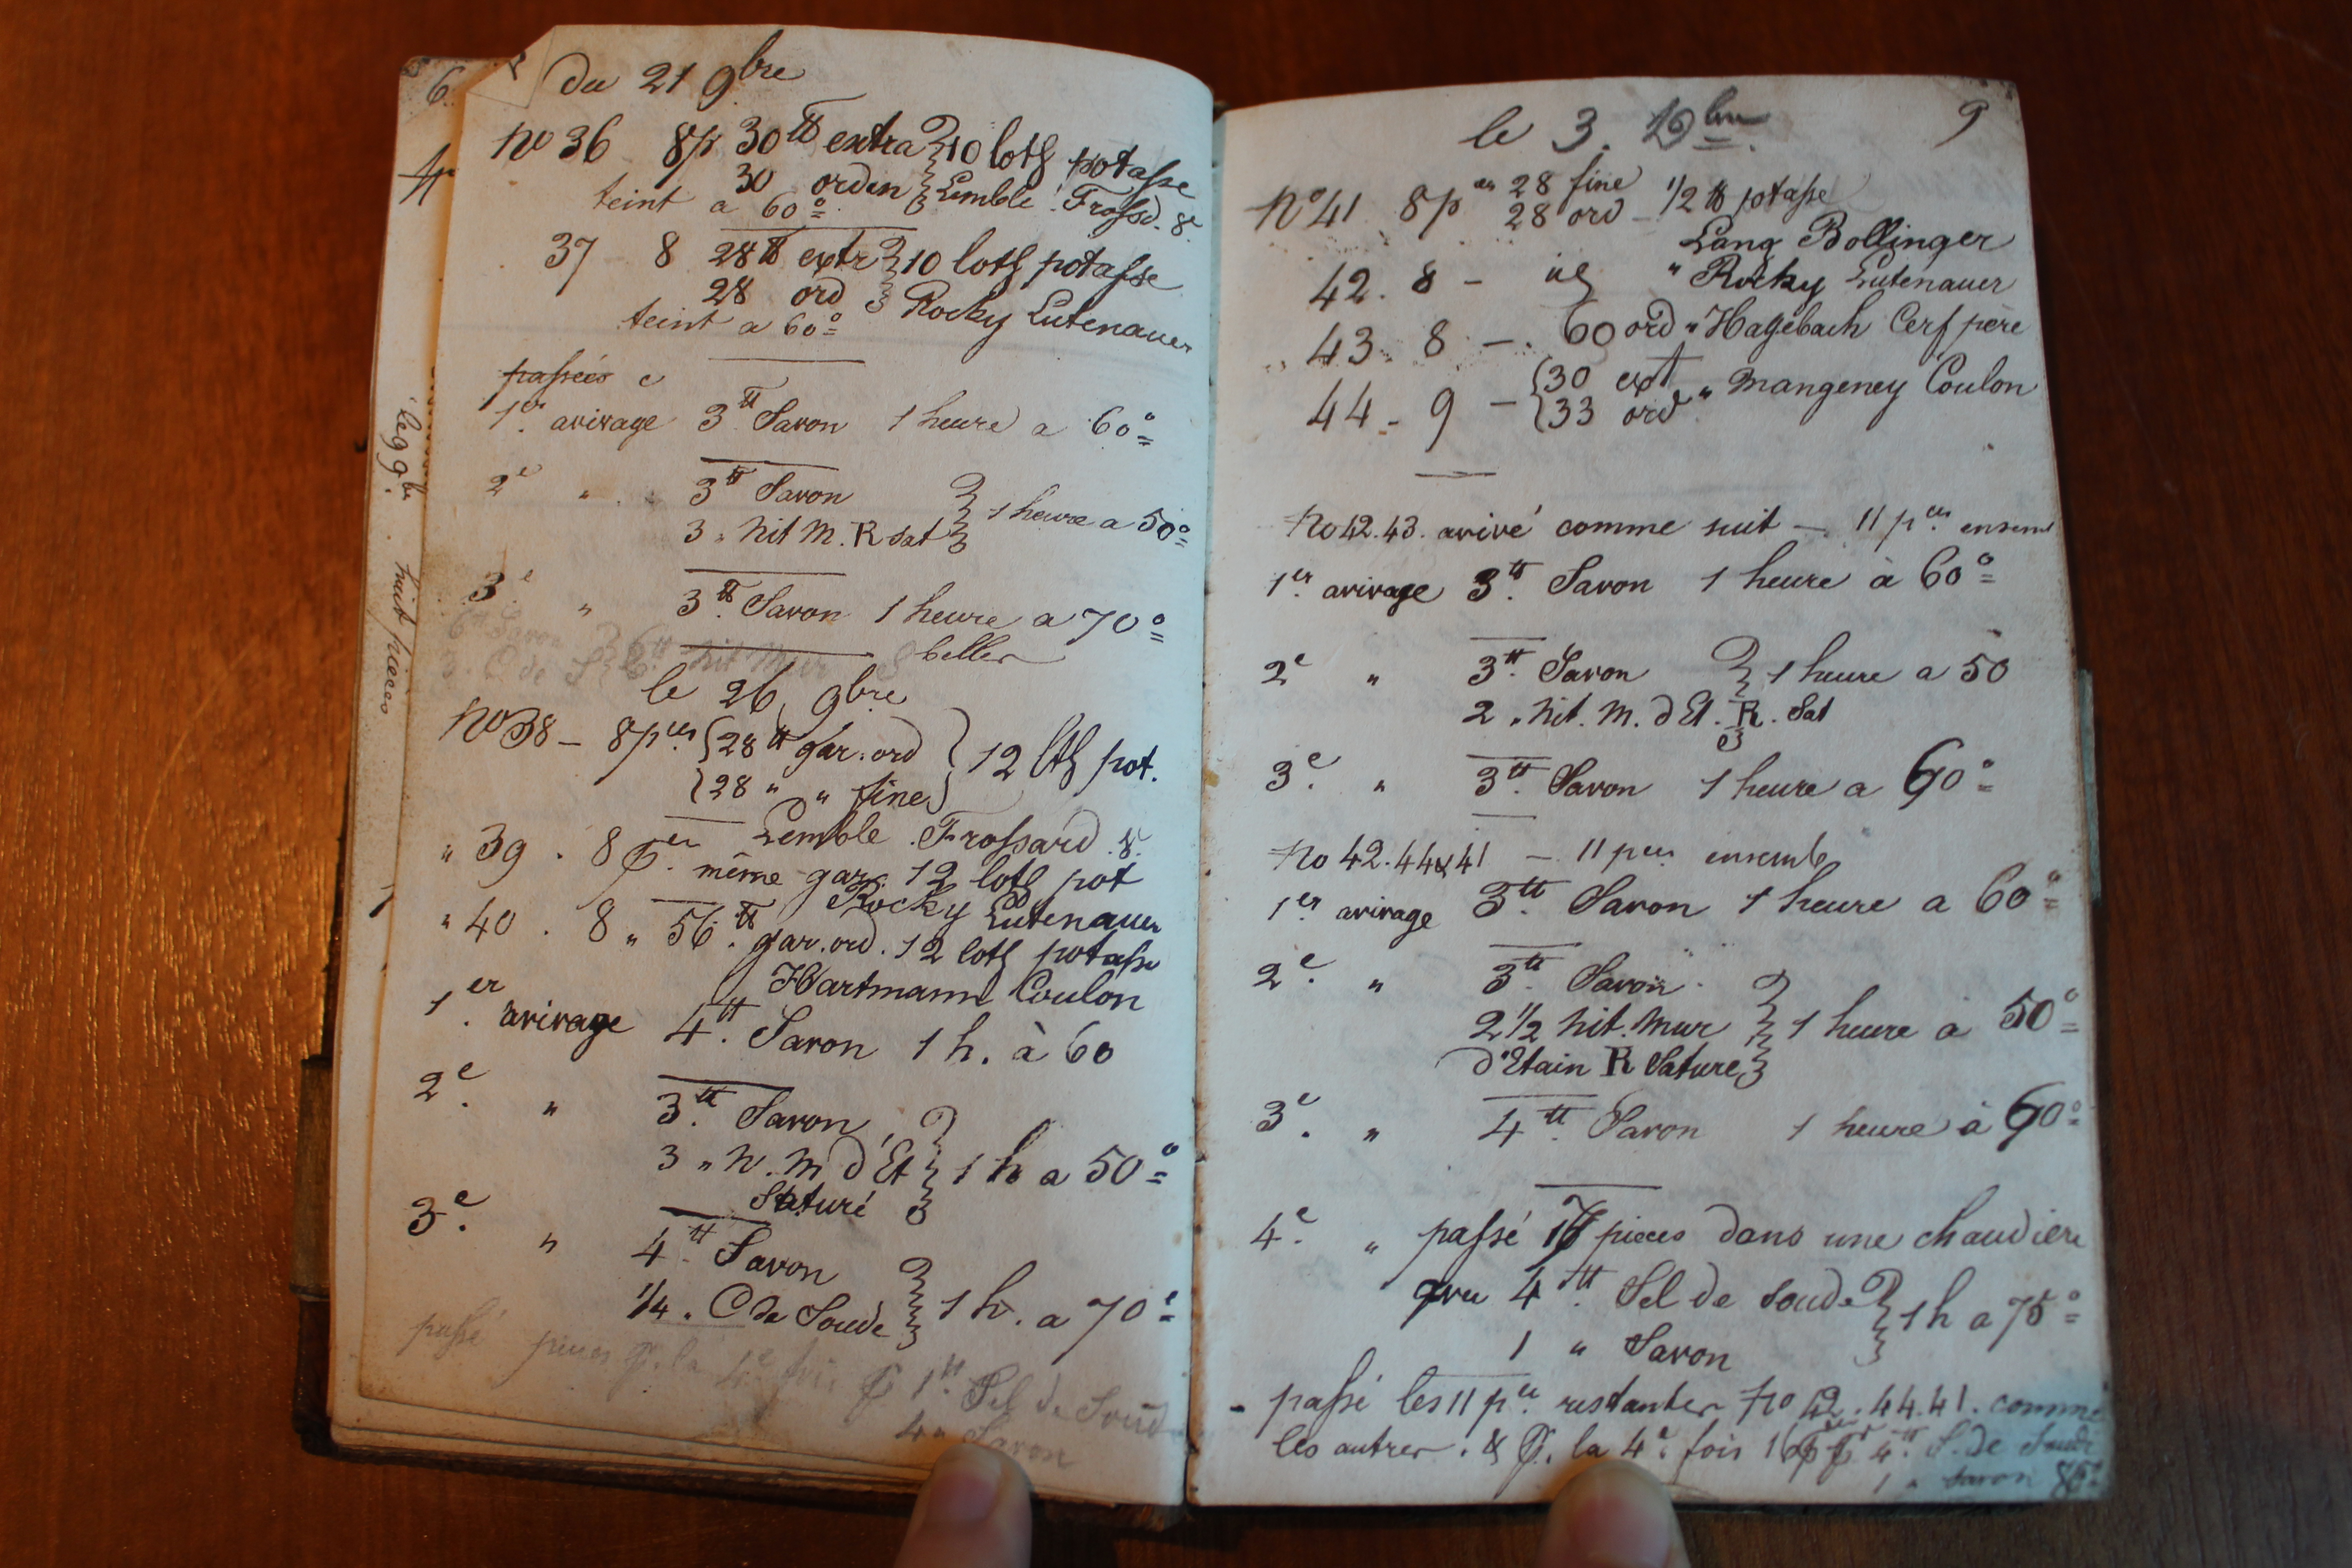 6
du 21 9bre
No 36 8p 30 ℔ extra } 10 loth potasse
30 orden } Lemble Frossd. 8.
teint a 60°
37 8 28 ℔ extr } 10 loth potasse
28 ord } Rocky Lutenauer
teint a 60°
passées e
1er. avivage 3 ℔ Savon 1 heure a 60°
2e " 3 ℔ Savon } 1 heure a 50°
3 " Nit M. R sat }
3e " 3 ℔ Savon 1 heure a 70°
beller
le 26 9bre
No 38 - 8 pces { 28 ℔ gar. ord } 12 lth pot.
{ 28 " " fine }
Lemble Frossard 8.
" 39 . 8 p. même gar. 12 loth pot
Rocky Lutenauer
" 40 . 8 " 56 ℔ gar. ord. 12 loth potasse
Hartmann Coulon
1er. avivage 4 ℔. Savon 1 h. à 60
2e. " 3 ℔. Savon } 1 h a 50°
3 " N. M d'Et }
Saturé
3e. " 4 ℔ Savon } 1 h. a 70°
1/4 " C de Soude }
passé pieces p. la 4e fois 1 ℔. Sel de Soud
4 " Savon
le 9 9b. huit pieces
9
le 3. 10bre
No 41 8 pces 28 fine 1/2 ℔ potasse
28 ord
Lang Bollinger
42. 8 - id " Rocky Lutenauer
43. 8 -. 60 ord " Hagebach Cerf père
44 - 9 - { 30 ext " Mangeney Coulon
{ 33 ord
No 42.43. avivé comme suit - 11 pces. ensem
1er. avivage 3 ℔. Savon 1 heure à 60°
2e " 3 ℔. Savon } 1 heure a 50
2 " Nit. M. d Et. R. Sat
3e. " 3 ℔. Savon 1 heure a 60°
No 42.44 & 41 - 11 pces ensemb
1er. avivage 3 ℔. Savon 1 heure a 60°
2e. " 3 ℔. Savon. } 1 heure a 50°
2 1/2 Nit. Mur }
d'Etain R Sature }
3e. " 4 ℔. Savon 1 heure à 60°
4e. " passé pieces dans une chaudiere
4 ℔. Sel de soude } 1 h a 75°
1 " Savon }
- passé les 11 pce. restantes No 42.44.41. comme
les autres. & p. la 4e. fois 16 4 ℔ S. de Soude
1 " Savon